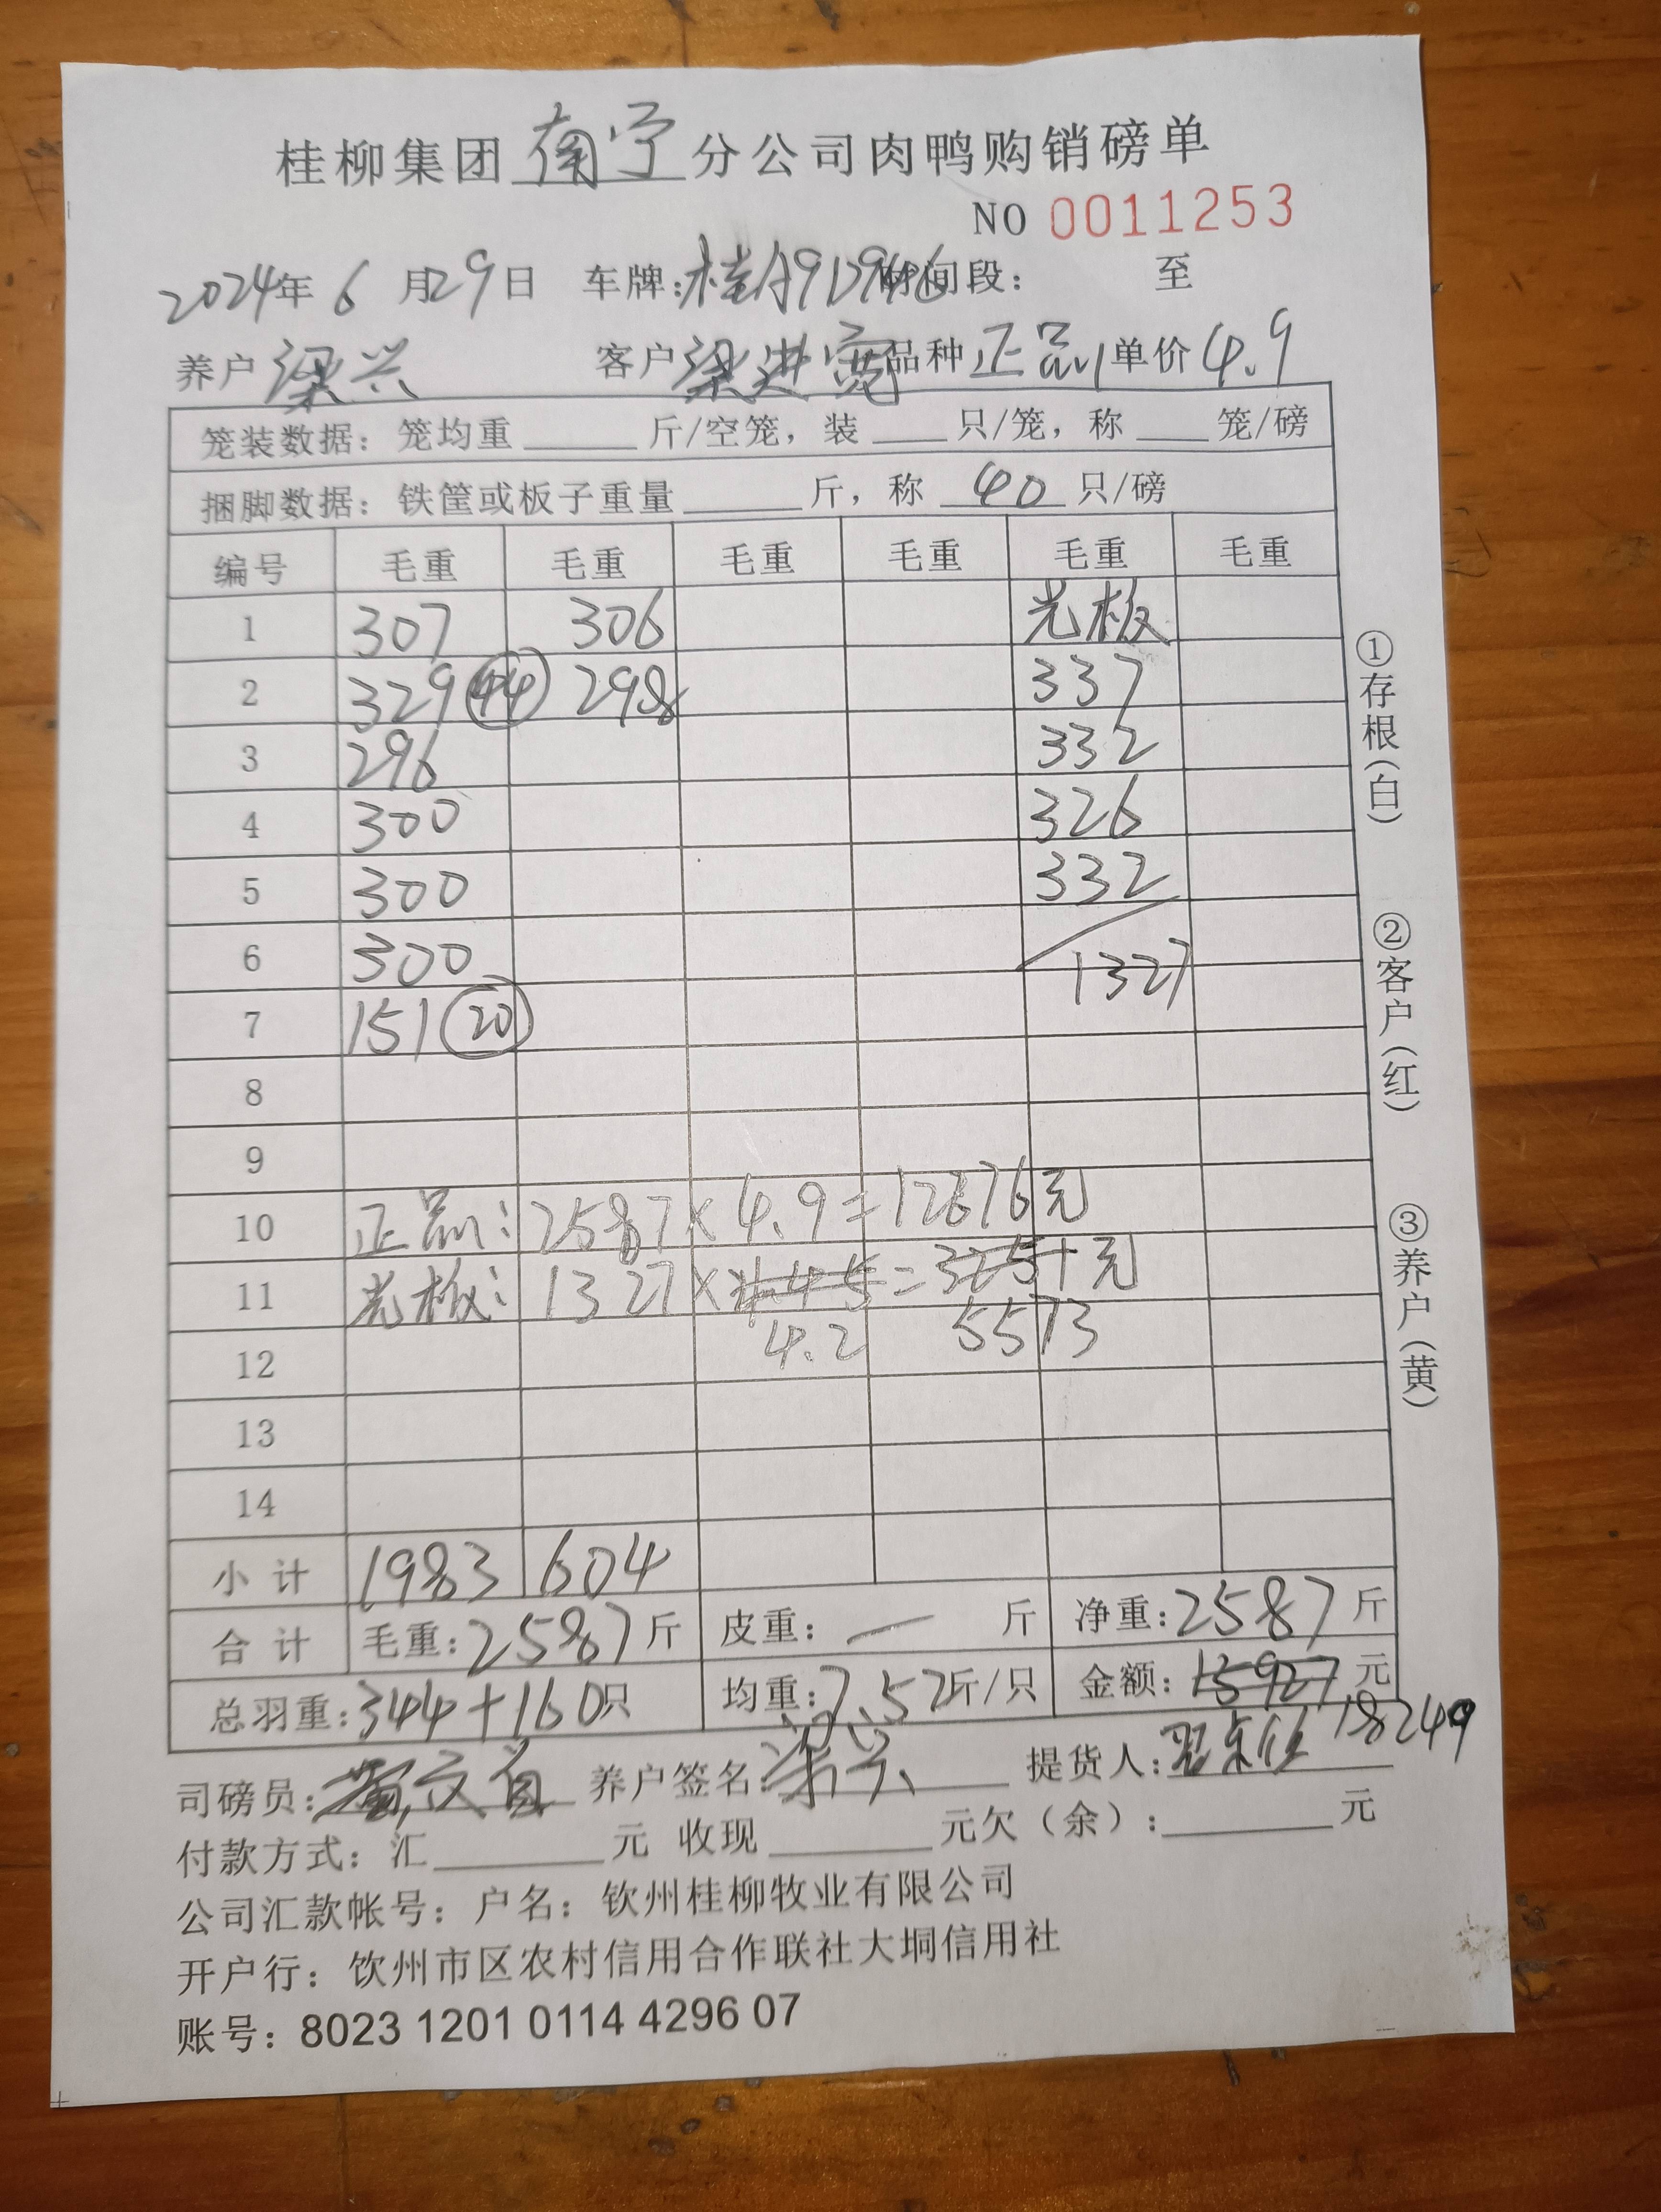 桂柳集团南宁分公司肉鸭购销磅单
NO 0011253
2024年6月29日 车牌:桂A9D946 时间段: 至
养户梁兴 客户梁进宽 品种正品 单价4.9
笼装数据: 笼均重 斤/空笼, 装 只/笼, 称 笼/磅
捆脚数据: 铁筐或板子重量 斤, 称 40 只/磅
编号 毛重 毛重 毛重 毛重 毛重 毛重
1 307 306 光板
2 329 44 298 337
3 296 332
4 300 326
5 300 332
6 300 1327
7 151 20
8
9
10 正品: 2587×4.9=12676元
11 光板: 1327× = 元
12 4.2 5573
13
14
小计 1983 604
合计 毛重:2587斤 皮重: — 斤 净重:2587斤
总羽重:344+160只 均重:7.52斤/只 金额:15927元
18249
司磅员: 养户签名:梁兴 提货人:
付款方式: 汇 元 收现 元欠(余): 元
公司汇款帐号: 户名: 钦州桂柳牧业有限公司
开户行: 钦州市区农村信用合作联社大垌信用社
账号: 8023 1201 0114 4296 07
①存根(白)
②客户(红)
③养户(黄)